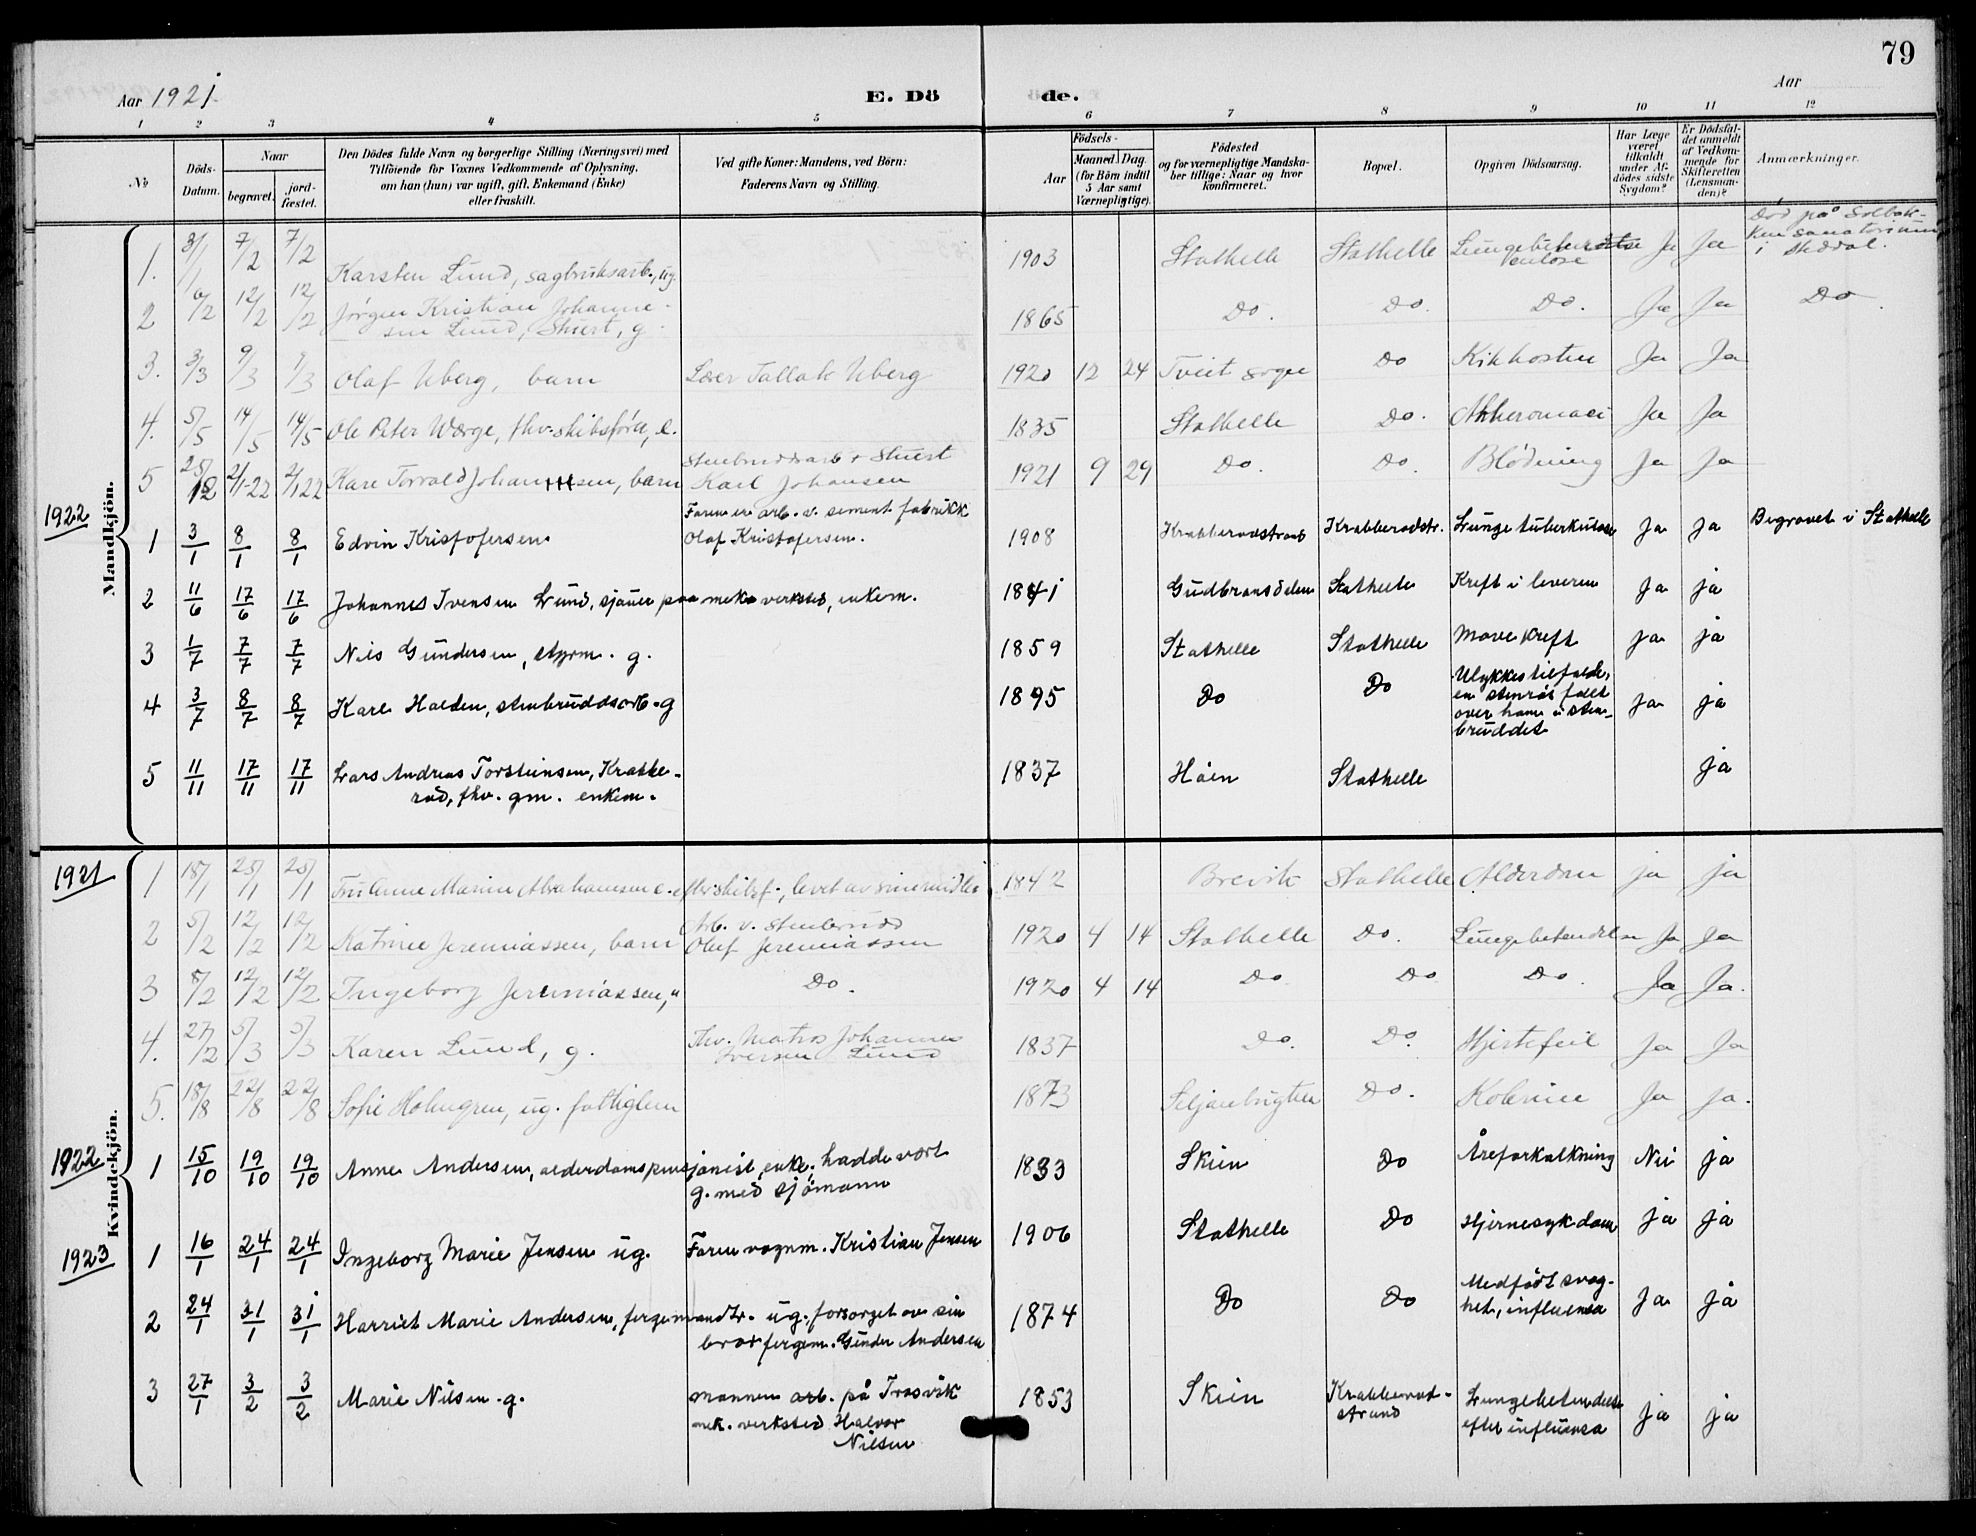 79
Aar 1921.
E. Dö de.
Aar
1 2 3 4 5 6 7 8 9 10 11 12
No
Döds-Datum.
Naar
begravet.
jord-fæstet.
Den Dödes fulde Navn og borgerlige Stilling (Næringsvei) med
Tilföiende for Voxnes Vedkommende af Oplysning,
om han (hun) var ugift, gift, Enkemand (Enke)
eller fraskilt.
Ved gifte Koner: Mandens, ved Börn:
Faderens Navn og Stilling.
Födsels-
Aar
Maaned. Dag.
(for Börn indtil
5 Aar samt
Værnepligtige).
Födested
og for værnepligtige Mandska-
ber tillige: Naar og hvor
konfirmeret.
Bopæl.
Opgiven Dödsaarsag.
Har Læge
været
tilkaldt
under Af-
dödes sidste
Sygdom?
Er Dödsfal-
det anmeldt
af Vedkom-
mende for
Skifteretten
(Lensman-
den)?
Anmærkninger.
Mandkjön.
1. 3/1 7/2 7/2 Karsten Lund, sagbruksarb., ug. 1903 Stathelle Stathelle Ja Ja Död på Solbak-
ken sanatorium
i
2 6/2 12/2 12/2 Jørgen Kristian Johanne-
sen Lund, Stuert, g. 1865 Do. Do. Do. Ja Ja Do.
3. 3/3 9/3 9/3 Olaf Uberg, barn Lærer Tallak Uberg 1920 12 24 Tveit sogn Do Kikhosten Ja Ja
4. 5/5 14/5 14/5 Ole Peter Værge, fhv. skibsförer, e. 1835 Stathelle Do. Ja Ja
5 25/12 2/1-22 2/1 22 Kare Torvald Johansen, barn Stenbruddsarb + Stuert
Karl Johansen 1921 9 29 Do. Do. Blödning Ja Ja
1922
1 3/1 8/1 8/1 Edvin Kristofersen Faren er arb. v. sement fabrikk
Olaf Kristofersen. 1908 Krabberødstrand Krabberødstr. Lungetuberkulose Ja Ja Begravet i Stathelle
2 11/6 17/6 17/6 Johannes Ivensen Lund, sjauer paa mek. verksted, enkem. 1841 Gudbransdalen Stathelle Kreft i leveren Ja ja
3 1/7 7/7 7/7 Nils Gundersen, styrm. g. 1859 Stathelle Stathelle Mavekreft ja ja
4 3/7 8/7 8/7 Karl Halden, stenbruddsarb. g 1895 Do Do Ulykkestilfælde,
en stenrås falt
over ham i sten-
bruddet ja ja
5 11/11 17/11 17/11 Lars Andreas Torsteinsen, Krabbe-
rød, fhv. gm. enkem. 1837 Håen Stathelle ja
Kvindekjön.
1921
1 18/1 25/1 25/1 Fru Anne Marine Abrahamsen e. efter skibsf., levet av sine midler 1842 Brevik Stathelle Alderdom ja ja
2 5/2 12/2 12/2 Katrine Jeremiassen, barn Arb. v. stenbrudd
Oluf Jeremiassen 1920 4 14 Stathelle Do. Lungebetændelse Ja Ja
3 8/2 12/2 12/2 Ingeborg Jeremiassen, " Do. 1920 4 14 Do Do Do. Ja Ja.
4. 27/2 5/3 5/3 Karen Lund, g. Fhv. Matros Johannes
Iversen Lund 1837 Do. Do. Hjertefeil Ja Ja
5. 18/8 22/8 22/8 Sofie Holmgren, ug. fattiglem 1873 Do. Ja ja.
1922
1 15/10 19/10 19/10 Anne Andersen, alderdomspensjonist, enke. hadde vært
g. med sjömann 1833 Skien Do Åreforkalkning Nei ja
1923
1 16/1 24/1 24/1 Ingeborg Marie Jensen ug. Faren vognm. Kristian Jensen 1906 Stathelle Do Hjernesykdom ja ja
2 24/1 31/1 31/1 Harriet Marie Andersen, fergemandtr. ug. forsorget av sin
bror fergem. Gunder Andersen 1874 Do Do Medfödt svag-
het, influensa ja ja
3 27/1 3/2 3/2 Marie Nilsen. g. Mannen arb. på Trosvik
mek. verksted Halvor
Nilsen 1853 Skien Krabberød-
strand Lungebetendelse
efter influensa ja ja